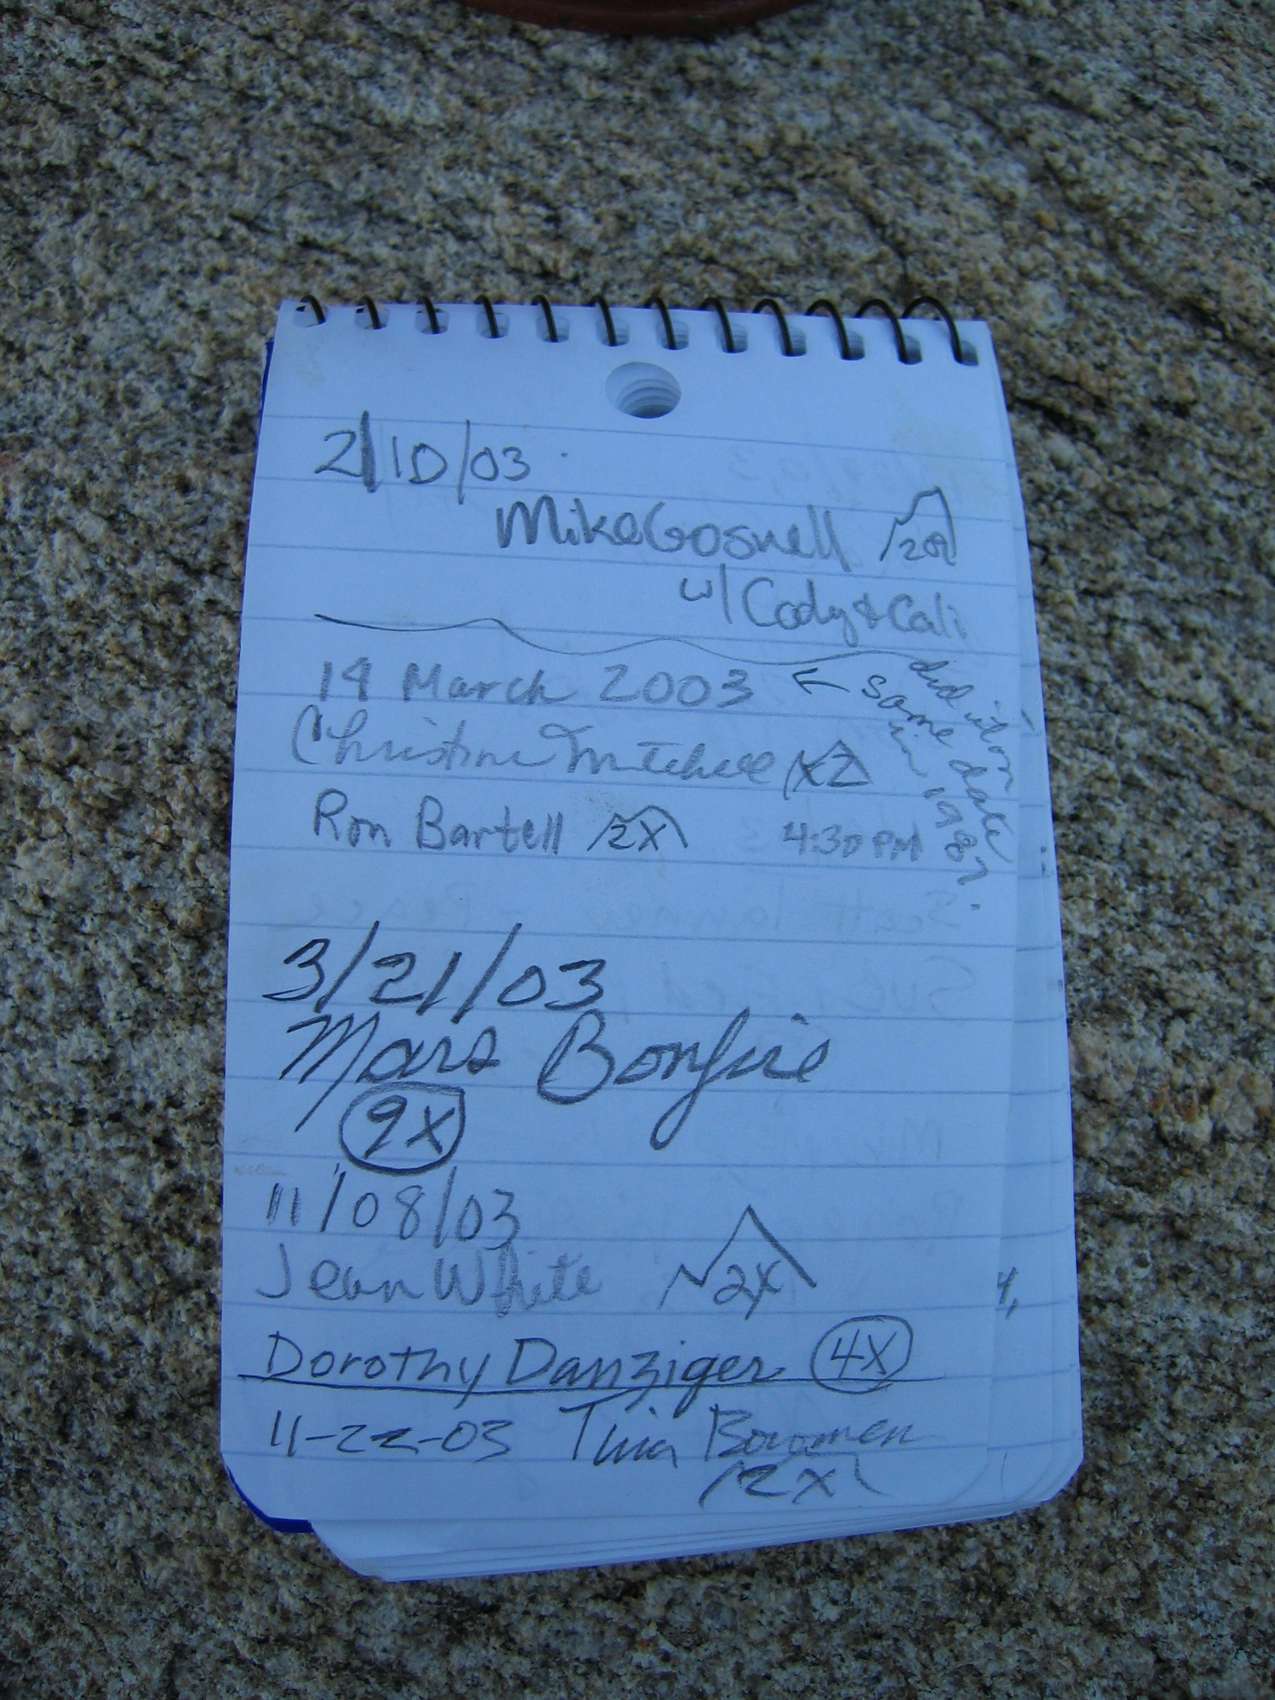 2/10/03
Mike Gosnell
w/ Cody & Cali
14 March 2003 ← did it on same date in 1987.
Christine Mitchell x2
Ron Bartell 2X 4:30 PM
3/21/03
Mars Bonfire
9X
11/08/03
Jean White 2X
Dorothy Danziger 4X
11-22-03 Tina Bowman
2X